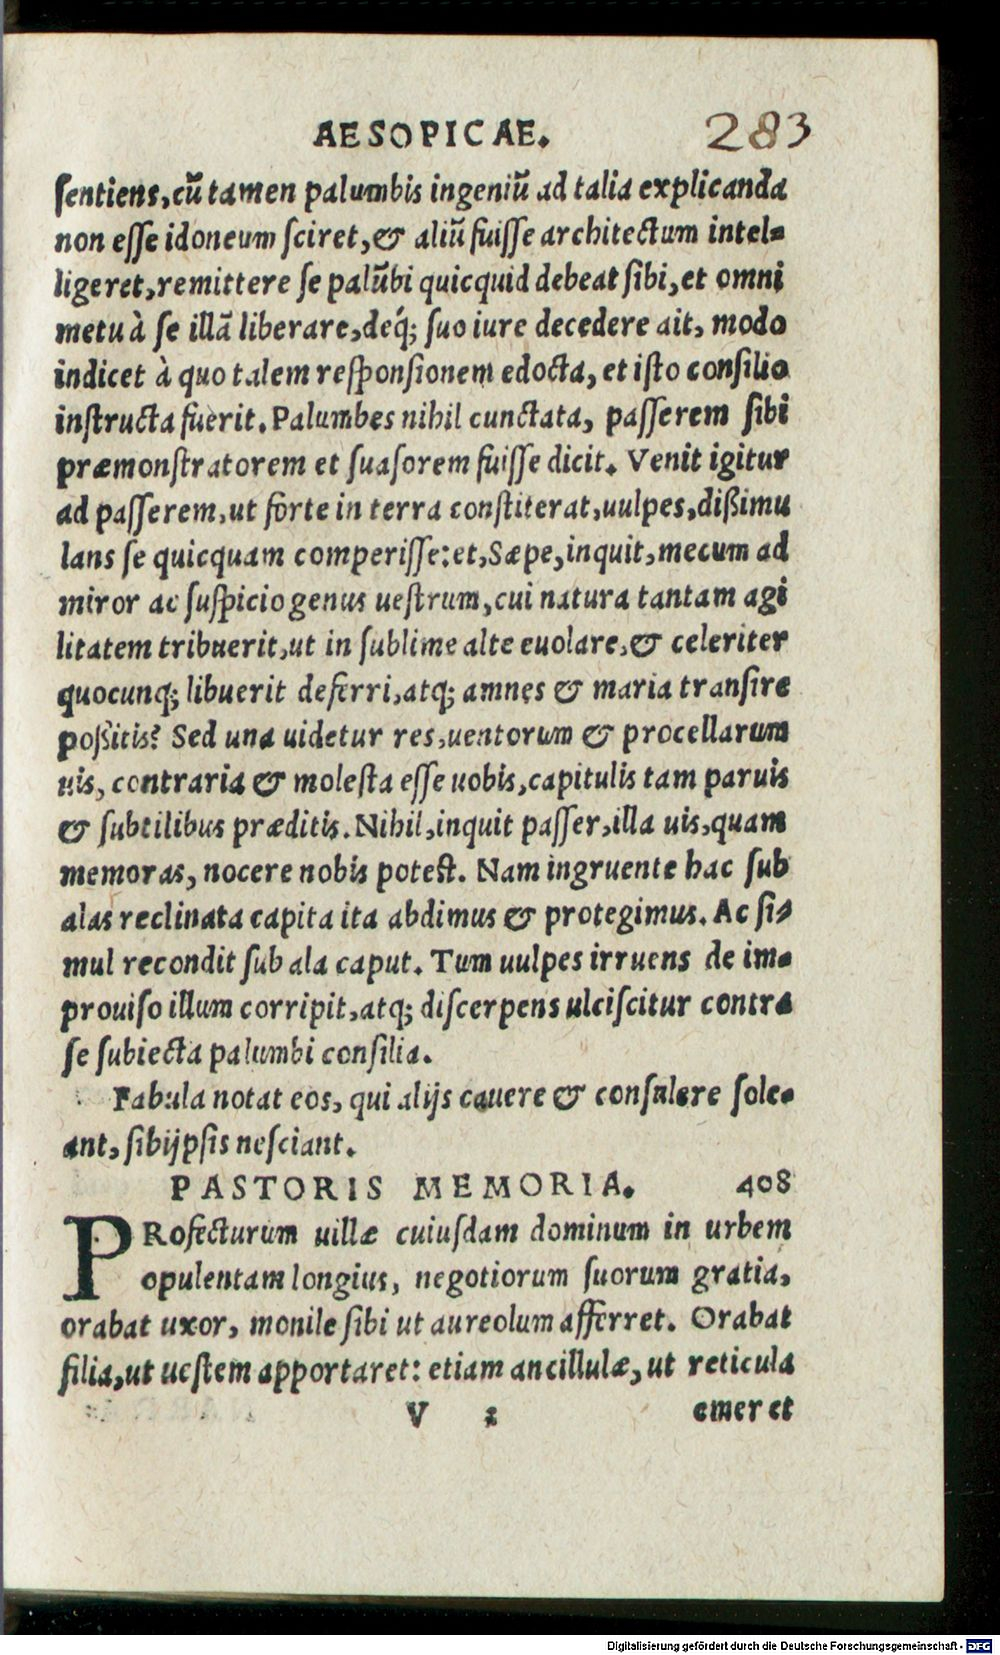 AESOPICAE. 283
sentiens, cū tamen palumbis ingeniū ad talia explicanda
non esse idoneum sciret, & aliū fuisse architectum intel-
ligeret, remittere se palūbi quicquid debeat sibi, et omni
metu à se illā liberare, deq́; suo iure decedere ait, modo
indicet à quo talem responsionem edocta, et isto consilio
instructa fuerit. Palumbes nihil cunctata, passerem sibi
præmonstratorem et suasorem fuisse dicit. Venit igitur
ad passerem, ut forte in terra constiterat, uulpes, dißimu
lans se quicquam comperisse: et, Sæpe, inquit, mecum ad
miror ac suspicio genus uestrum, cui natura tantam agi
litatem tribuerit, ut in sublime alte euolare, & celeriter
quocunq; libuerit deferri, atq; amnes & maria transire
poßitis? Sed una uidetur res, uentorum & procellarum
uis, contraria & molesta esse uobis, capitulis tam paruis
& subtilibus præditis. Nihil, inquit passer, illa uis, quam
memoras, nocere nobis potest. Nam ingruente hac sub
alas reclinata capita ita abdimus & protegimus. Ac si-
mul recondit sub ala caput. Tum uulpes irruens de im-
prouiso illum corripit, atq; discerpens ulciscitur contra
se subiecta palumbi consilia.
Fabula notat eos, qui alijs cauere & consulere sole-
ant, sibijpsis nesciant.
PASTORIS MEMORIA. 408
PRofecturum uillæ cuiusdam dominum in urbem
opulentam longius, negotiorum suorum gratia,
orabat uxor, monile sibi ut aureolum afferret. Orabat
filia, ut uestem apportaret: etiam ancillulæ, ut reticula
V 2 emeret
Digitalisierung gefördert durch die Deutsche Forschungsgemeinschaft - DFG